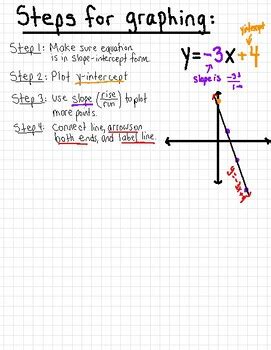 Steps for graphing:
Step 1: Make sure equation
is in slope-intercept form.
y-intercept
y=-3x+4
slope is -3↓/1→
Step 2: Plot y-intercept
Step 3: Use slope (rise/run) to plot
more points.
Step 4: Connect line, arrows on
both ends, and label line.